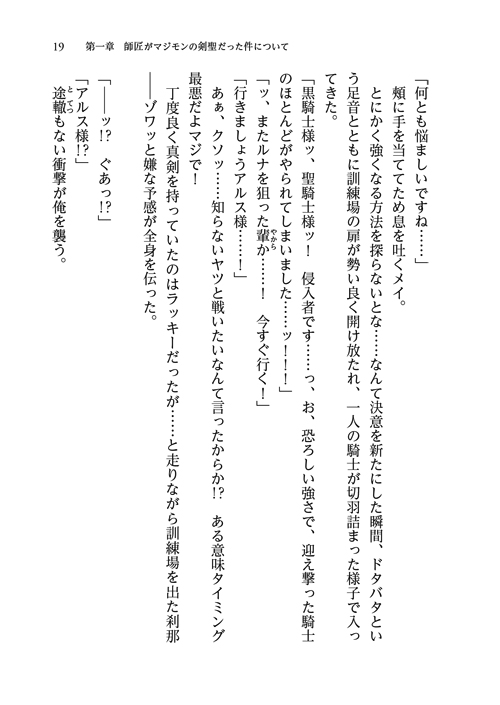 19　第一章　師匠がマジモンの剣聖だった件について
「何とも悩ましいですね……」
　頬に手を当ててため息を吐くメイ。
　とにかく強くなる方法を探らないとな……なんて決意を新たにした瞬間、ドタバタとい
う足音とともに訓練場の扉が勢い良く開け放たれ、一人の騎士が切羽詰まった様子で入っ
てきた。
「黒騎士様ッ、聖騎士様ッ！　侵入者です……っ、お、恐ろしい強さで、迎え撃った騎士
のほとんどがやられてしまいました……ッ！！！」
「ッ、またルナを狙った輩か……！　今すぐ行く！」
やから
「行きましょうアルス様……！」
　あぁ、クソッ……知らないヤツと戦いたいなんて言ったからか!?　ある意味タイミング
最悪だよマジで！
　丁度良く真剣を持っていたのはラッキーだったが……と走りながら訓練場を出た刹那
――ゾワッと嫌な予感が全身を伝った。
「――ッ!?　ぐあっ!?」
「アルス様!?」
　途轍もない衝撃が俺を襲う。
とてつ